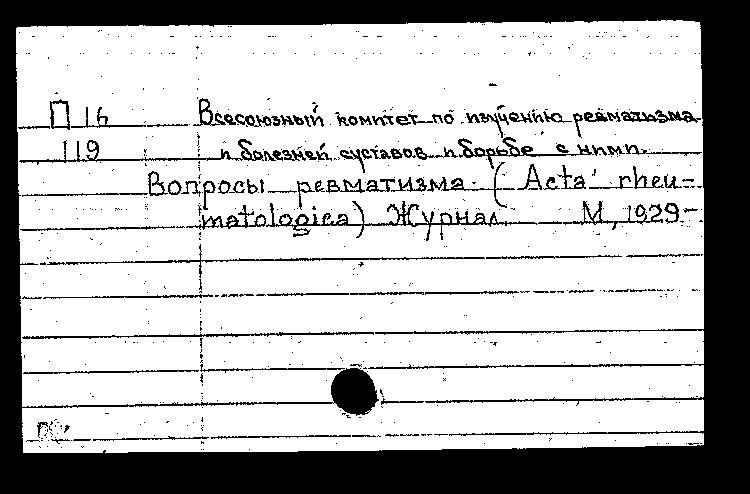 П 16 Всесоюзный комитет по изучению ревматизма
119 и болезней суставов и борьбе с ними.
Вопросы ревматизма. (Acta rheu-
matologica) Журнал. М., 1929-